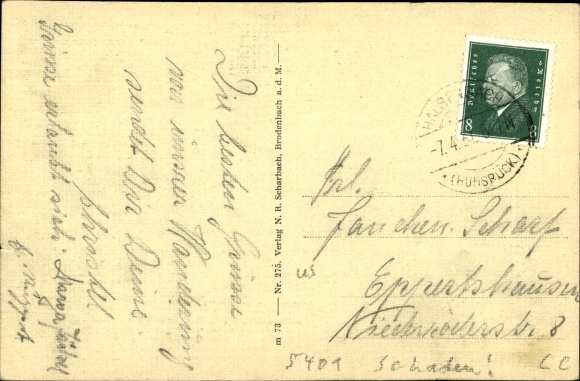 Die besten Grüsse
von unserer Wanderung
sendet Dir Deine
Christel
Grüsse erlaubt sich
m 73 — Nr. 275. Verlag N. R. Scharbach, Brodenbach a. d. M. —
Deutsches Reich
8 8
HALSENBACH
-7.4.
(HUNSRÜCK)
Frl.
Janchen Scharf
Eppertshausen
Niederröderstr. 8
5401 Schaden! CC